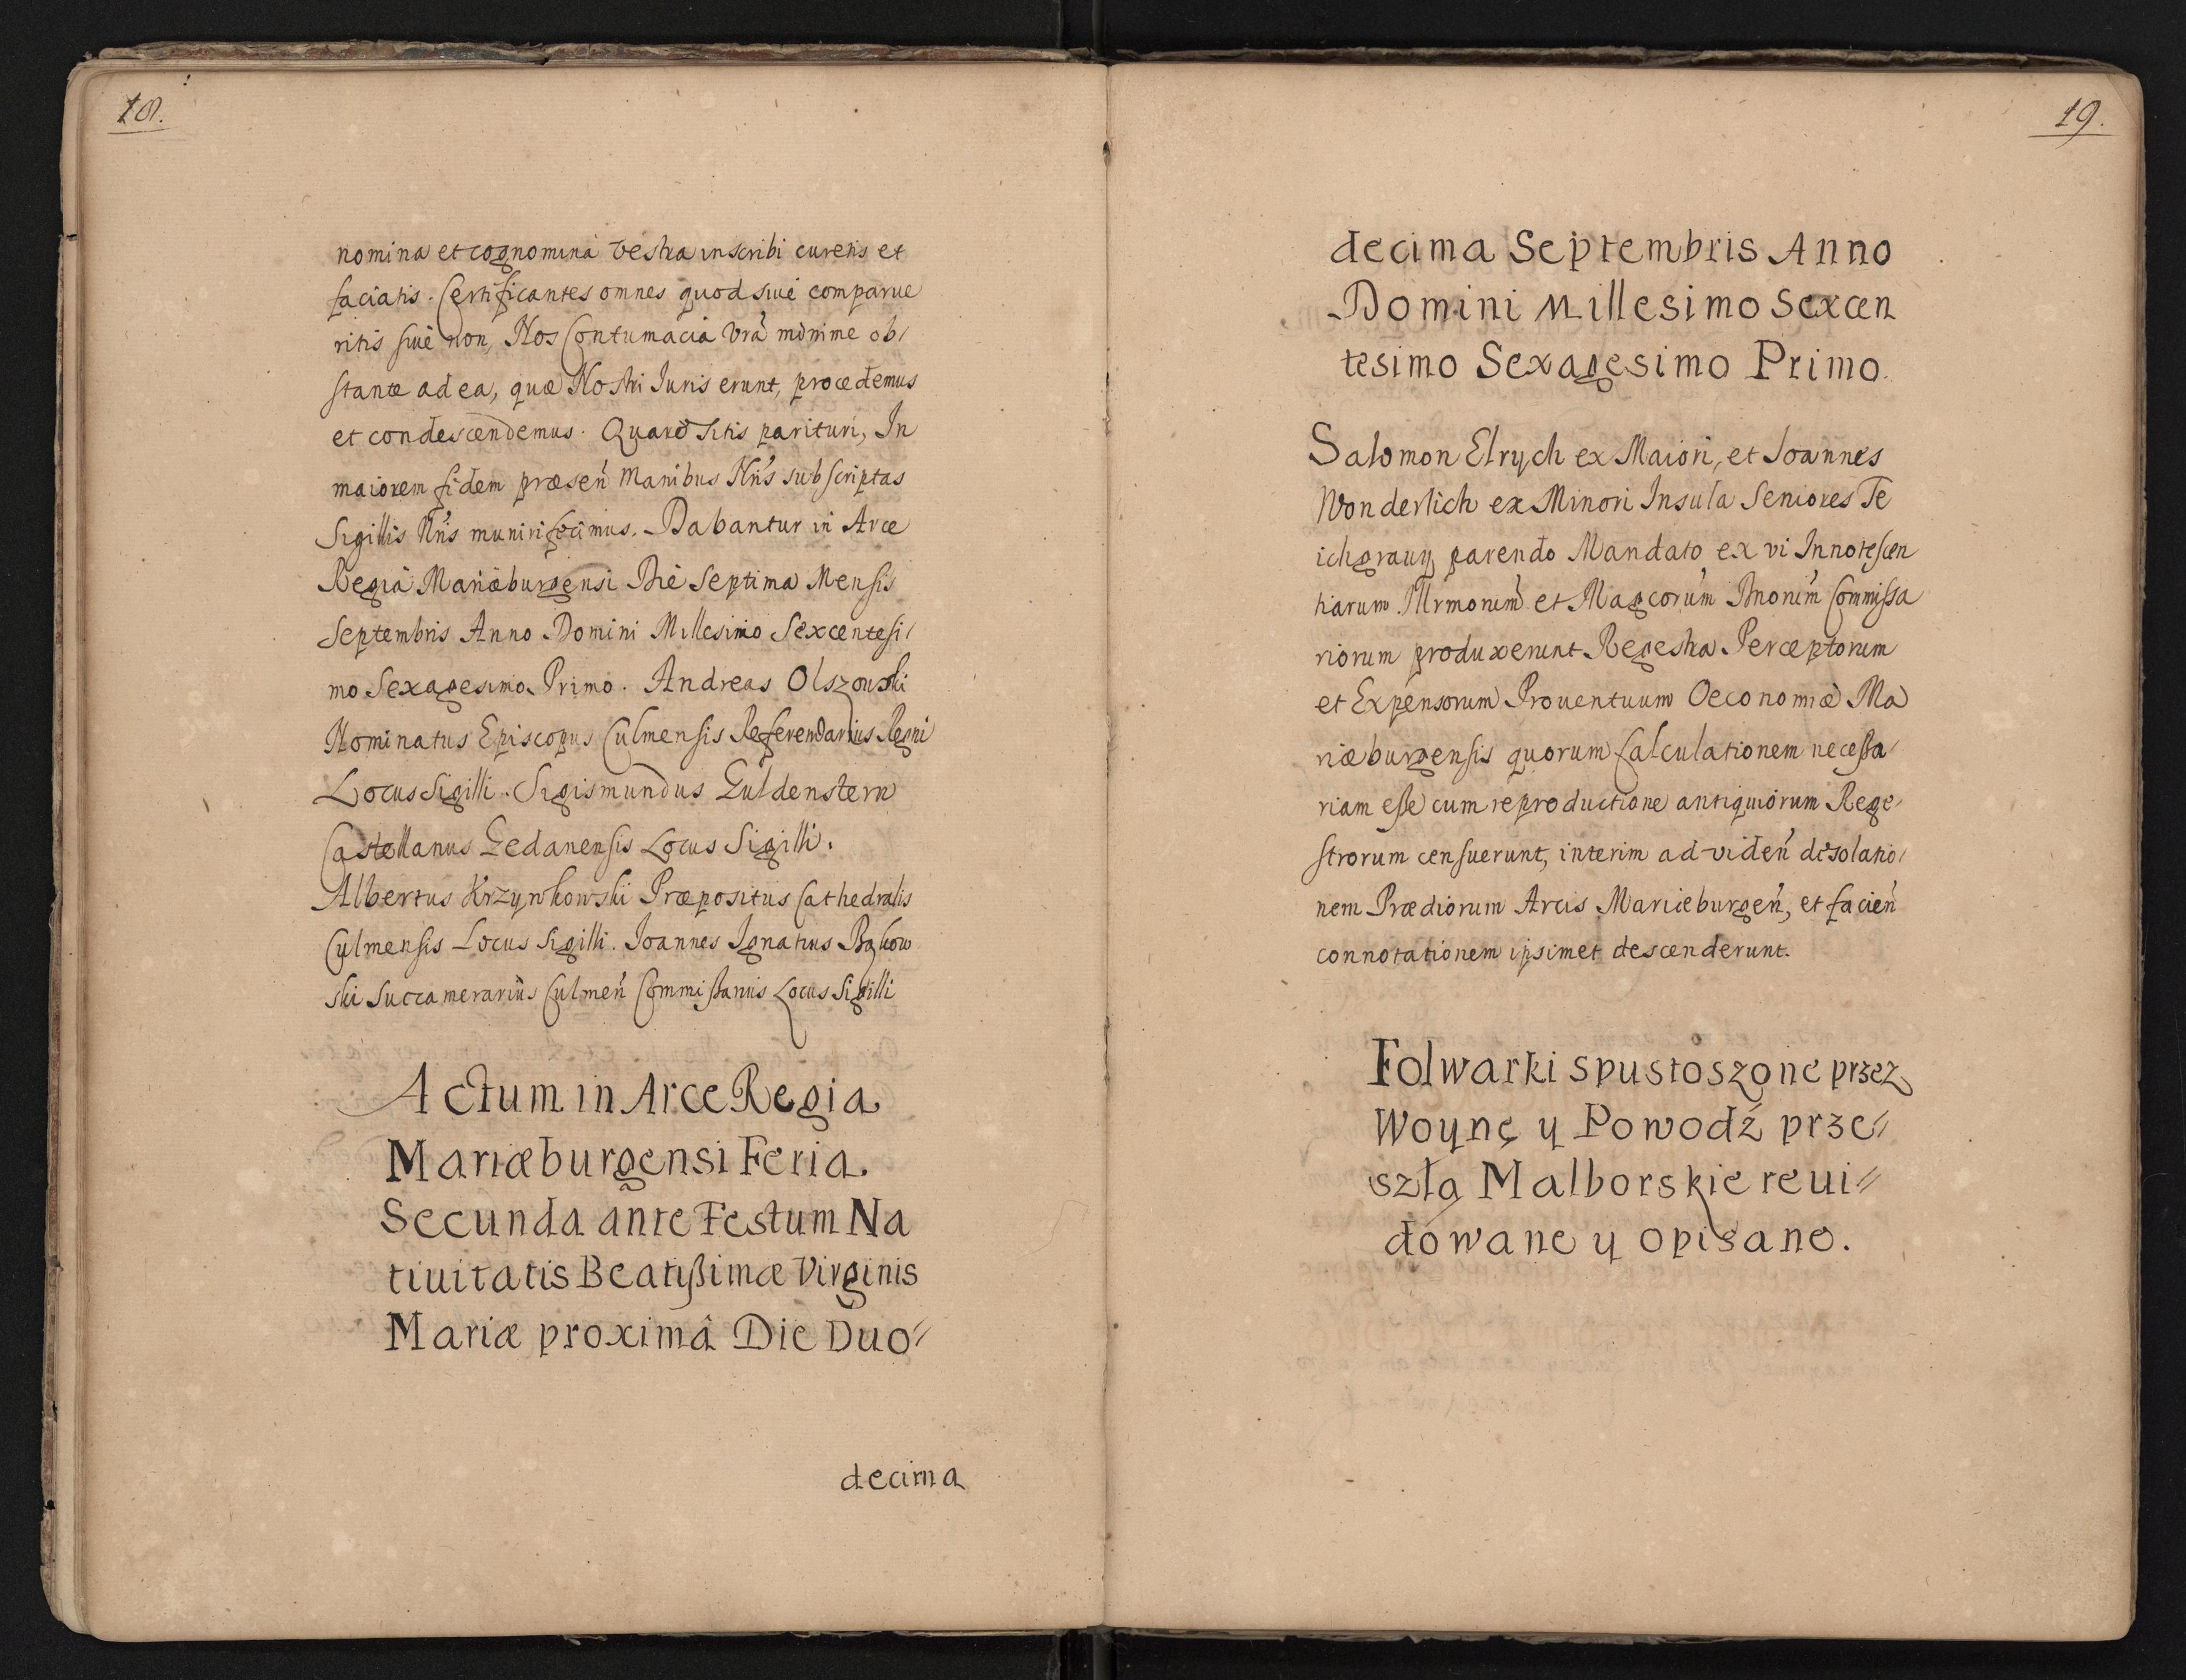 18.
nomina et cognomina vestra inscribi curetis et
faciatis. Certificantes omnes quod sivè comparue
ritis sivè non, Nos Contumacia Vrã minime ob/
stante ad ea, quæ Nostri Iuris erunt, procedemus
et condescendemus. Quarè sitis parituri, In
maiorem fidem præseń Manibus Nr̃is subscriptas
Sigillis Nr̃is muniri fecimus. Dabantur in Arce
Regiâ Mariæburgensi Die Septima Mensis
Septembris Anno Domini Millesimo Sexcentesi/
mo Sexagesimo Primo. Andreas Olszowski
Nominatus Episcopus Culmensis Referendarius Regni
Locus Sigilli. Sigismundus Guldenstern
Castellanus Gedanensis Locus Sigilli.
Albertus Krzywkowski Præpositus Cathedralis
Culmensis Locus Sigilli. Ioannes Ignatius Bąkow
ski Succamerarius Culmeń Commissarius Locus Sigilli
Actum in Arce Regia
Mariæburgensi Feria
Secunda ante Festum Na
tiuitatis Beatißimæ Virginis
Mariæ proximâ Die Duo//
decima
19.
decima Septembris Anno
Domini Millesimo Sexcen
tesimo Sexagesimo Primo.
Salomon Elrych ex Maiori, et Ioannes
Wonderlich ex Minori Insula Seniores Te
ichgrauy parendo Mandato ex vi Innotescen
tiarum Illrmorum et Magcorum Dnorum Commissa
riorum produxerunt Regestra Perceptorum
et Expensorum Prouentuum Oeconomiæ Ma
riæburgensis quorum Calculationem necessa/
riam esse cum reproductione antiquiorum Rege/
strorum censuerunt, interim ad videń desolatio/
nem Prædiorum Arcis Mariæburgeń, et facień
connotationem ipsimet descenderunt.
Folwarki spustoszone przez
Woynę y Powodź prze//
szłą Malborskie reui//
dowane y opisane.